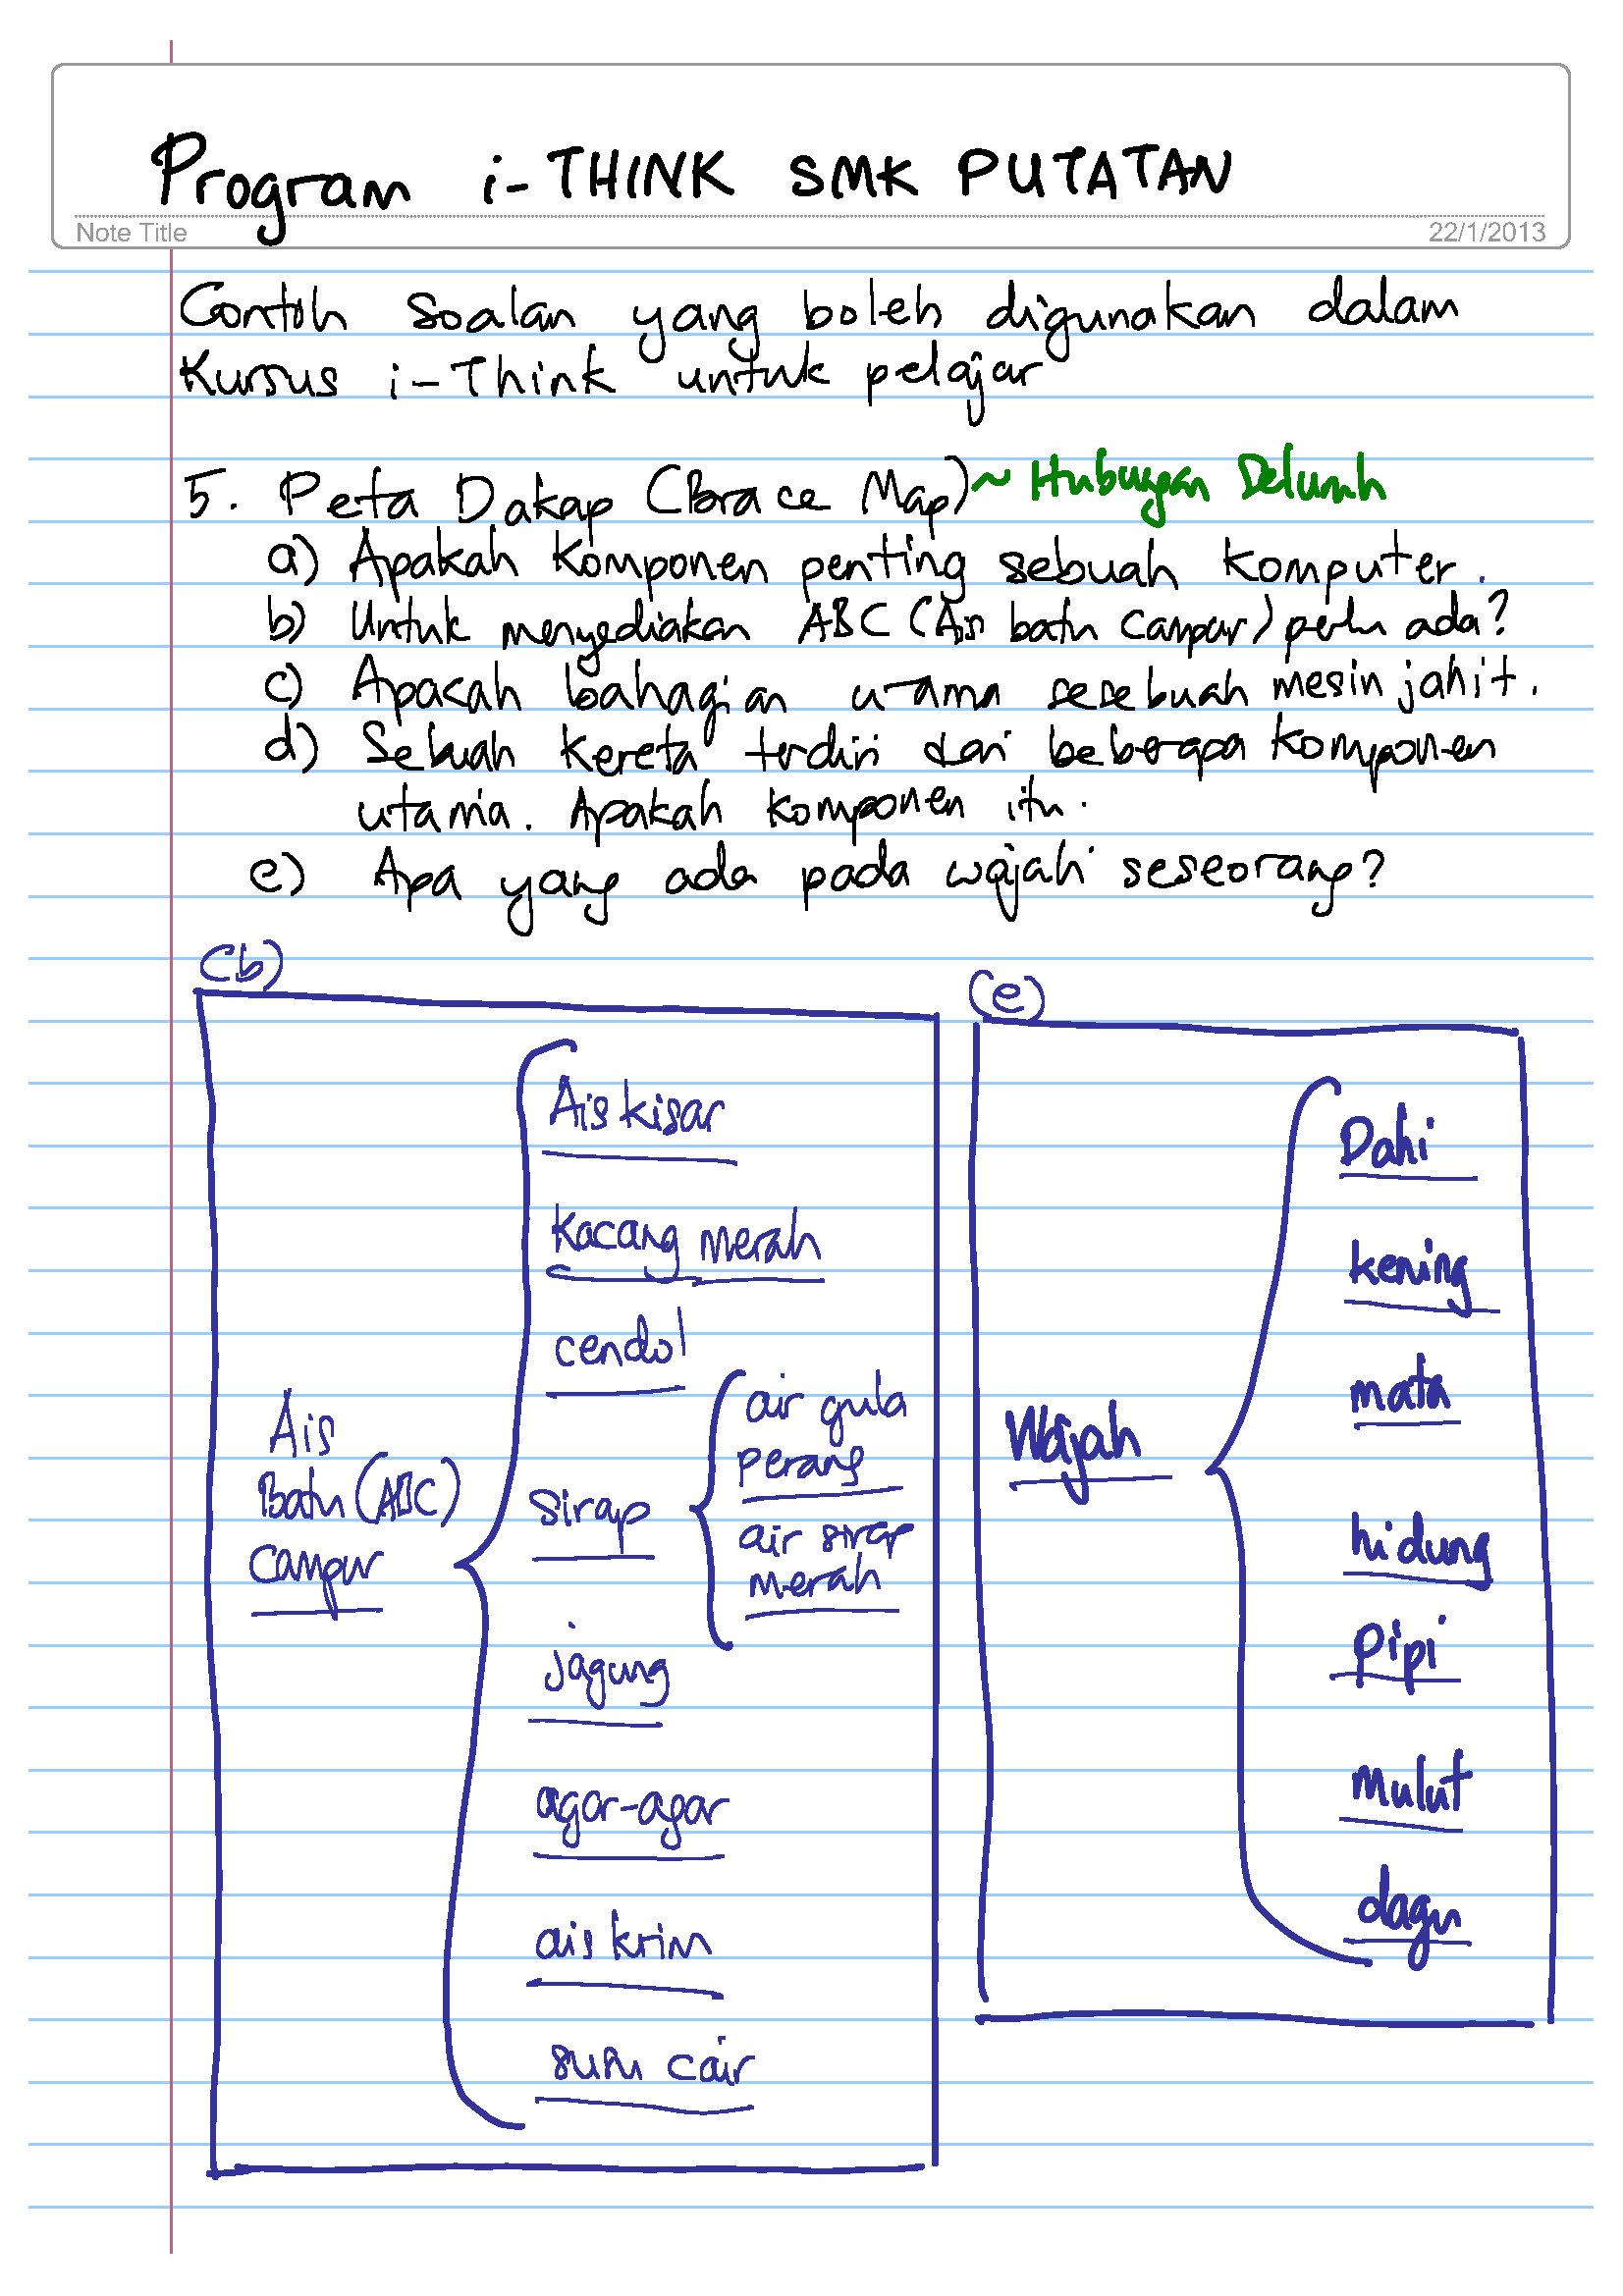 Program i-THINK SMK PUTATAN
Note Title
22/1/2013
Contoh Soalan yang boleh digunakan dalam
Kursus i-Think untuk pelajar
5. Peta Dakap (Brace Map) ~ Hubungan
a) Apakah Komponen penting sebuah komputer.
b) Untuk menyediakan ABC (Ais batu campur) perlu ada?
c) Apakah bahagian utama sesebuah mesin jahit.
d) Sebuah Kereta terdiri dari beberapa komponen
utama. Apakah komponen itu.
e) Apa yang ada pada wajah seseorang?
(b)
Ais
Batu (ABC)
Campur
Ais kisar
Kacang merah
cendol
sirap
air gula
perang
air sirap
merah
jagung
agar-agar
ais krim
susu cair
(e)
Wajah
Dahi
kening
mata
hidung
pipi
mulut
dagu